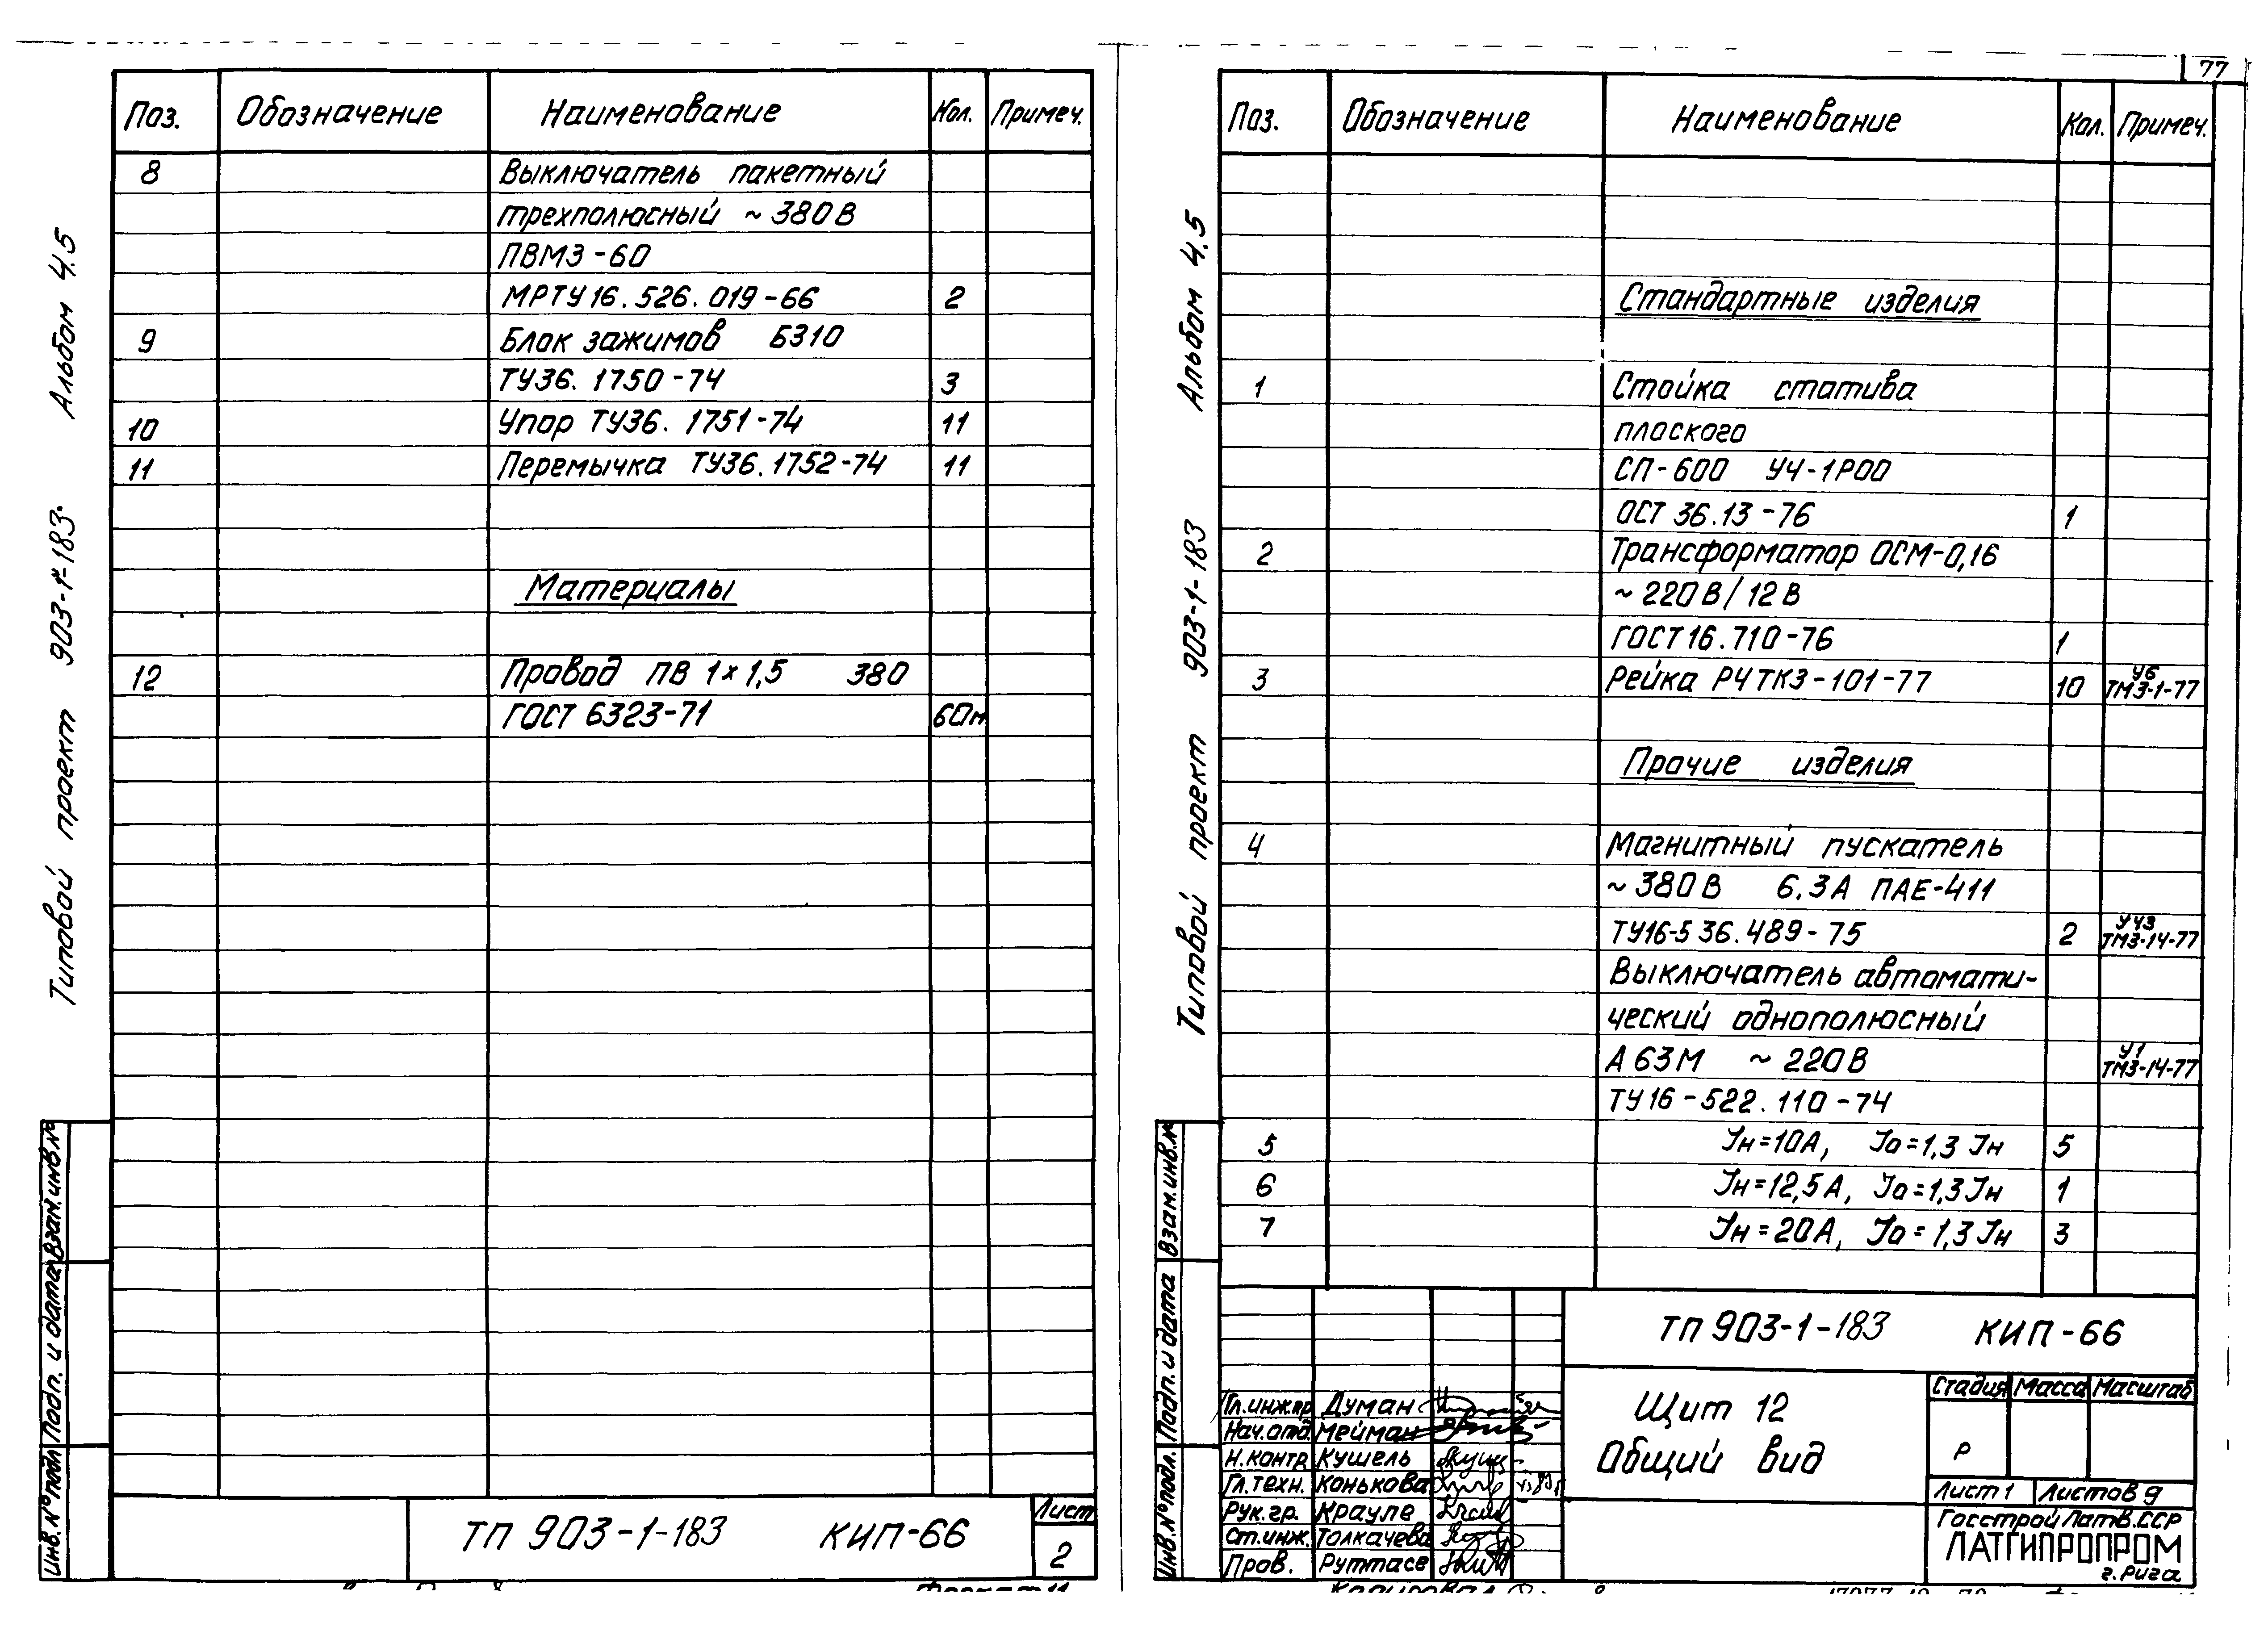 Поз. Обозначение Наименование Кол. Примеч.
8 Выключатель пакетный
трехполюсный ~ 380 В
ПВМ3-60
МРТУ 16. 526. 019-66 2
9 Блок зажимов Б310
ТУ36. 1750-74 3
10 Упор ТУ36. 1751-74 11
11 Перемычка ТУ36. 1752-74 11
Материалы
12 Провод ПВ 1х1,5 380
ГОСТ 6323-71 60м
ТП 903-1-183 КИП-66
Лист
2
Типовой проект 903-1-183 Альбом 4.5
Инв.№ подл. Подп. и дата Взам.инв.№
77
Поз. Обозначение Наименование Кол. Примеч.
Стандартные изделия
1 Стойка статива
плоского
СП-600 УЧ-1Р00
ОСТ 36.13-76 1
2 Трансформатор ОСМ-0,16
~ 220 В / 12 В
ГОСТ 16.710-76 1
3 Рейка РЧ ТК3-101-77 10 У6
ТМ3-1-77
Прочие изделия
4 Магнитный пускатель
~ 380 В 6.3А ПАЕ-411
ТУ16-536.489-75 2 УЧ3
ТМ3-14-77
Выключатель автомати-
ческий однополюсный
А 63М ~ 220 В У1
ТМ3-14-77
ТУ 16-522. 110-74
5 Iн=10А, Iо=1,3 Iн 5
6 Iн=12,5А, Iо=1,3 Iн 1
7 Iн=20А, Iо=1,3 Iн 3
ТП 903-1-183 КИП-66
Щит 12
Общий вид
Стадия Масса Масштаб
Р
Лист 1 Листов 9
Госстрой Латв.ССР
ЛАТГИПРОПРОМ
г. Рига
Гл.инж.пр Думан
Нач.отд. Мейман
Н.контр. Кушель
Гл.техн. Конькова
Рук.гр. Крауле
Ст.инж. Толкачева
Пров. Руттасе
Типовой проект 903-1-183 Альбом 4.5
Инв.№ подл. Подп. и дата Взам.инв.№